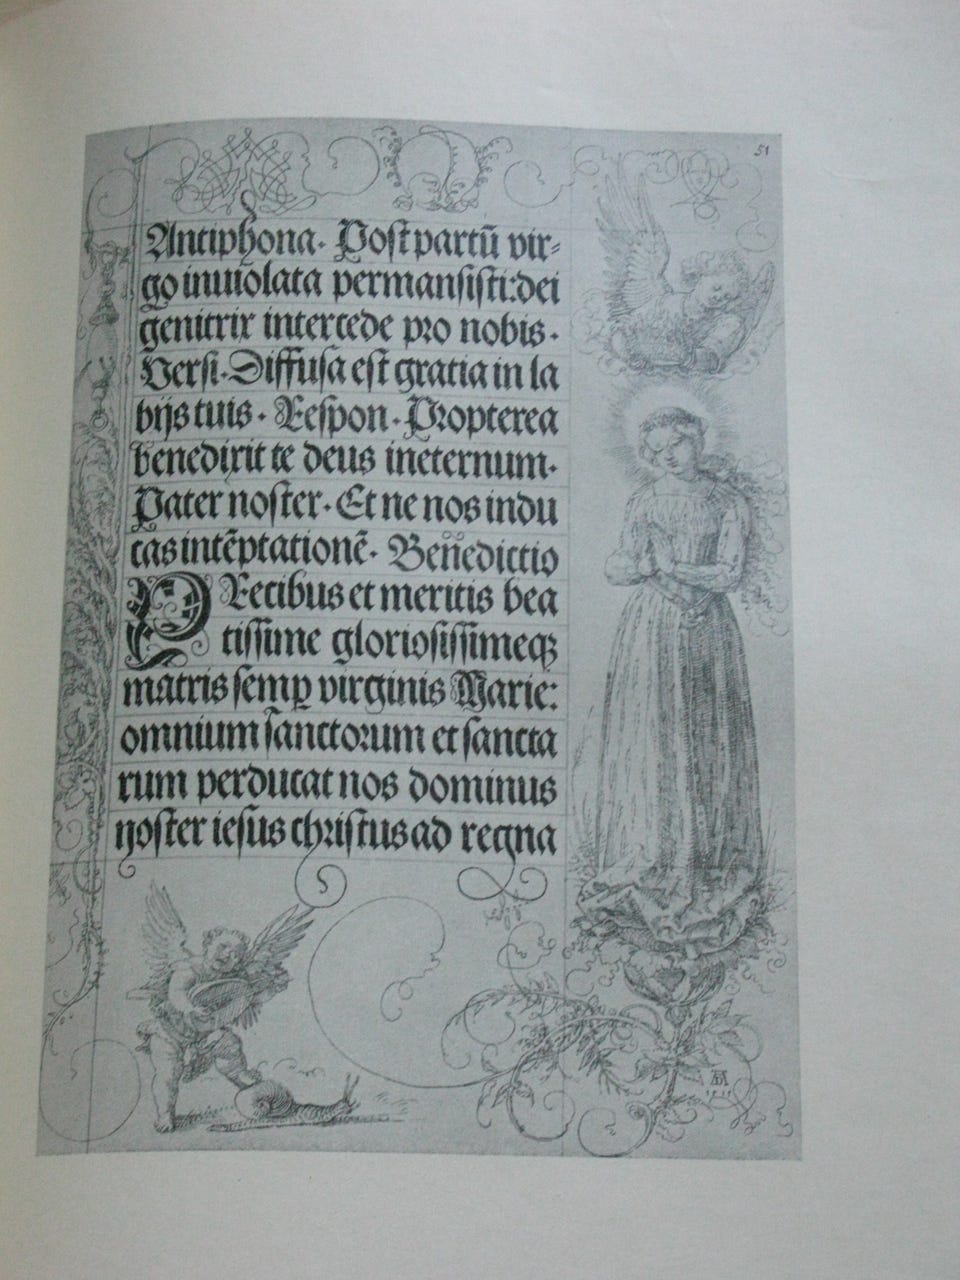 51
Antiphona. Post partū vir-
go inuiolata permansisti: dei
genitrix intercede pro nobis.
Versi. Diffusa est gratia in la
bijs tuis. Respon. Propterea
benedixit te deus ineternum.
Pater noster. Et ne nos indu
cas intēptationē. Benedictio
PRecibus et meritis bea
tissime gloriosissimeqꝫ
matris semꝑ virginis Marie:
omnium sanctorum et sancta
rum perducat nos dominus
noster iesus christus ad regna
AD